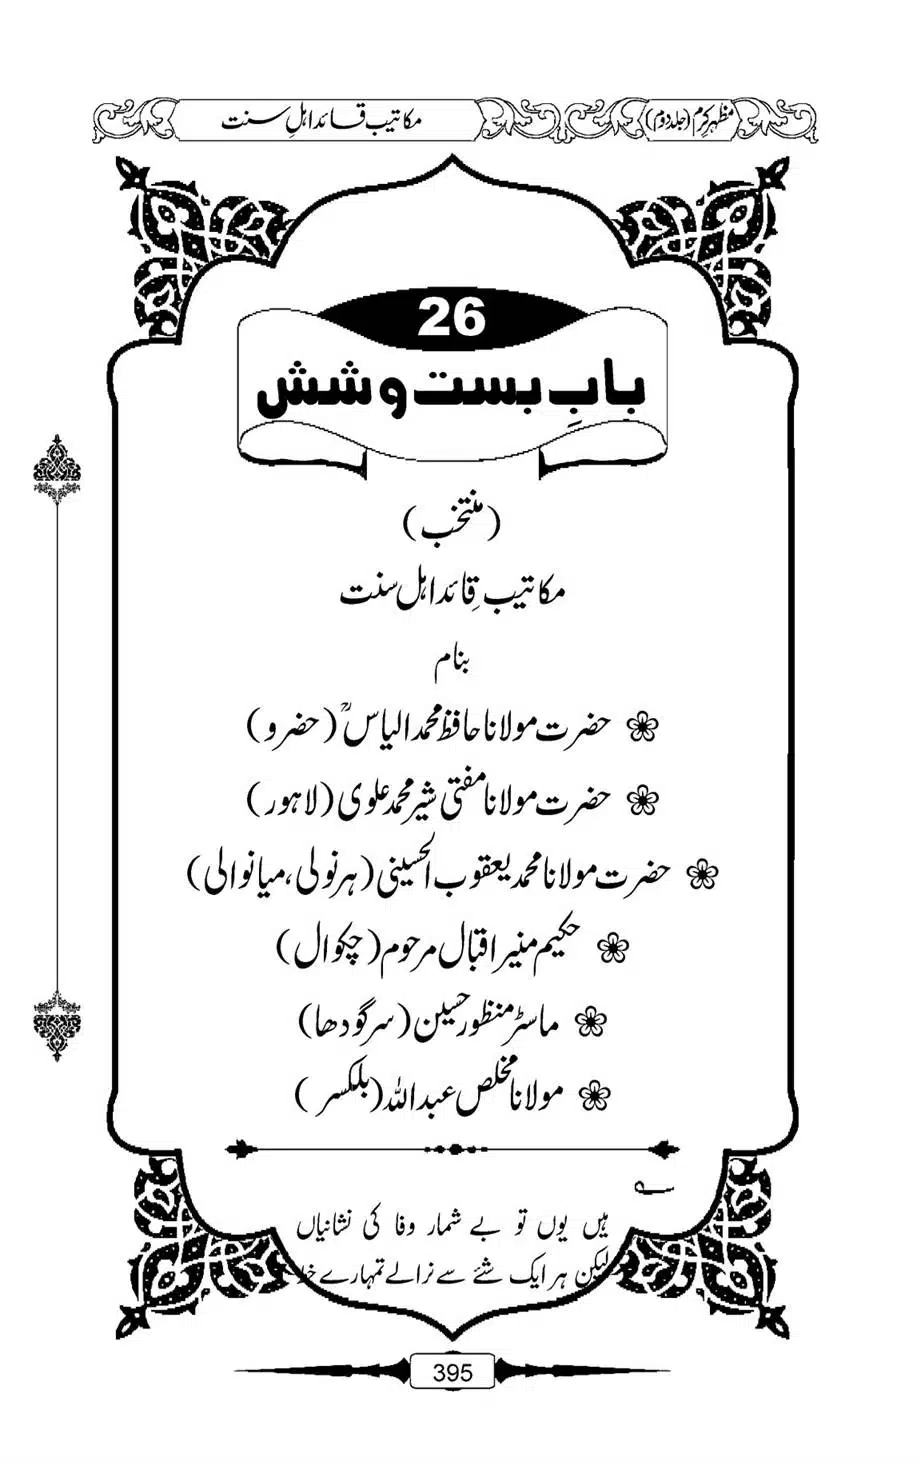 مظہرِ کرم (جلد دوم)
مکاتیب قائد اہلِ سنت
26
بابِ بست و شش
(منتخب)
مکاتیبِ قائد اہل سنت
بنام
حضرت مولانا حافظ محمد الیاسؒ (حضرو)
حضرت مولانا مفتی شیر محمد علوی (لاہور)
حضرت مولانا محمد یعقوب الحسینی (ہرنولی، میانوالی)
حکیم منیر اقبال مرحوم (چکوال)
ماسٹر منظور حسین (سرگودھا)
مولانا مخلص عبداللہ (بلکسر)
؎
ہیں یوں تو بے شمار وفا کی نشانیاں
لیکن ہر ایک شئے سے نرالے تمہارے خط
395